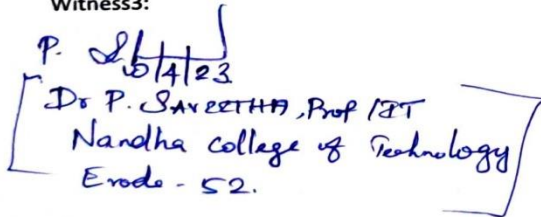 Witness3:
P. S
5/4/23
Dr P. SAVEETHA, Prof/IT
Nandha college of Technology
Erode - 52.